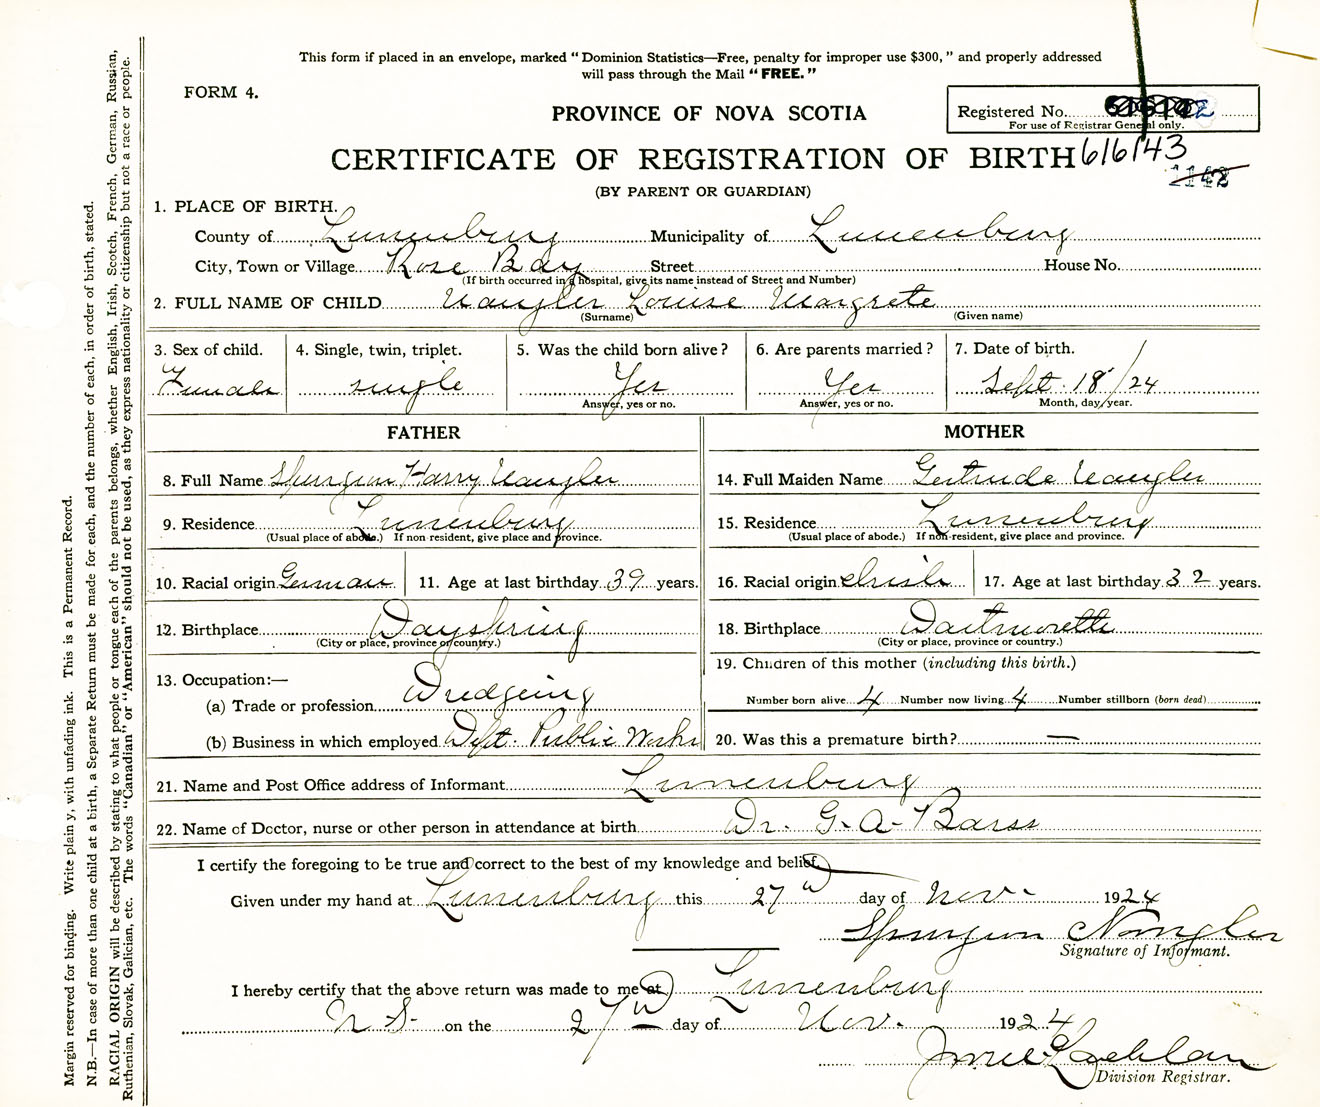 This form if placed in an envelope, marked "Dominion Statistics—Free, penalty for improper use $300," and properly addressed
will pass through the Mail "FREE."
FORM 4.
PROVINCE OF NOVA SCOTIA
Registered No.
For use of Registrar General only.
CERTIFICATE OF REGISTRATION OF BIRTH 616143
1142
(BY PARENT OR GUARDIAN)
1. PLACE OF BIRTH.
County of Lunenburg Municipality of Lunenburg
City, Town or Village Rose Bay Street House No.
(If birth occurred in a hospital, give its name instead of Street and Number)
2. FULL NAME OF CHILD Naugler Louise Margrete
(Surname) (Given name)
3. Sex of child. 4. Single, twin, triplet. 5. Was the child born alive? 6. Are parents married? 7. Date of birth.
Female single Yes Yes Sept. 18/24
Answer, yes or no. Answer, yes or no. Month, day, year.
FATHER MOTHER
8. Full Name Spurgeon Harry Naugler 14. Full Maiden Name Gertrude Naugler
9. Residence Lunenburg 15. Residence Lunenburg
(Usual place of abode.) If non-resident, give place and province. (Usual place of abode.) If non-resident, give place and province.
10. Racial origin German 11. Age at last birthday 39 years. 16. Racial origin Irish 17. Age at last birthday 32 years.
12. Birthplace Dayspring 18. Birthplace
(City or place, province or country.) (City or place, province or country.)
19. Children of this mother (including this birth.)
13. Occupation:—
(a) Trade or profession Dredgeing Number born alive 4 Number now living 4 Number stillborn (born dead)
(b) Business in which employed Dept. Public Works 20. Was this a premature birth? —
21. Name and Post Office address of Informant Lunenburg
22. Name of Doctor, nurse or other person in attendance at birth Dr. G. A. Barss
I certify the foregoing to be true and correct to the best of my knowledge and belief.
Given under my hand at Lunenburg this 27th day of Nov. 1924
Spurgeon Naugler
Signature of Informant.
I hereby certify that the above return was made to me at Lunenburg
N.S. on the 27th day of Nov. 1924
Division Registrar.
Margin reserved for binding. Write plainly, with unfading ink. This is a Permanent Record.
N.B.—In case of more than one child at a birth, a Separate Return must be made for each, and the number of each, in order of birth, stated.
RACIAL ORIGIN will be described by stating to what people or tongue each of the parents belongs, whether English, Irish, Scotch, French, German, Russian,
Ruthenian, Slovak, Galician, etc. The words "Canadian" or "American" should not be used, as they express nationality or citizenship but not a race or people.